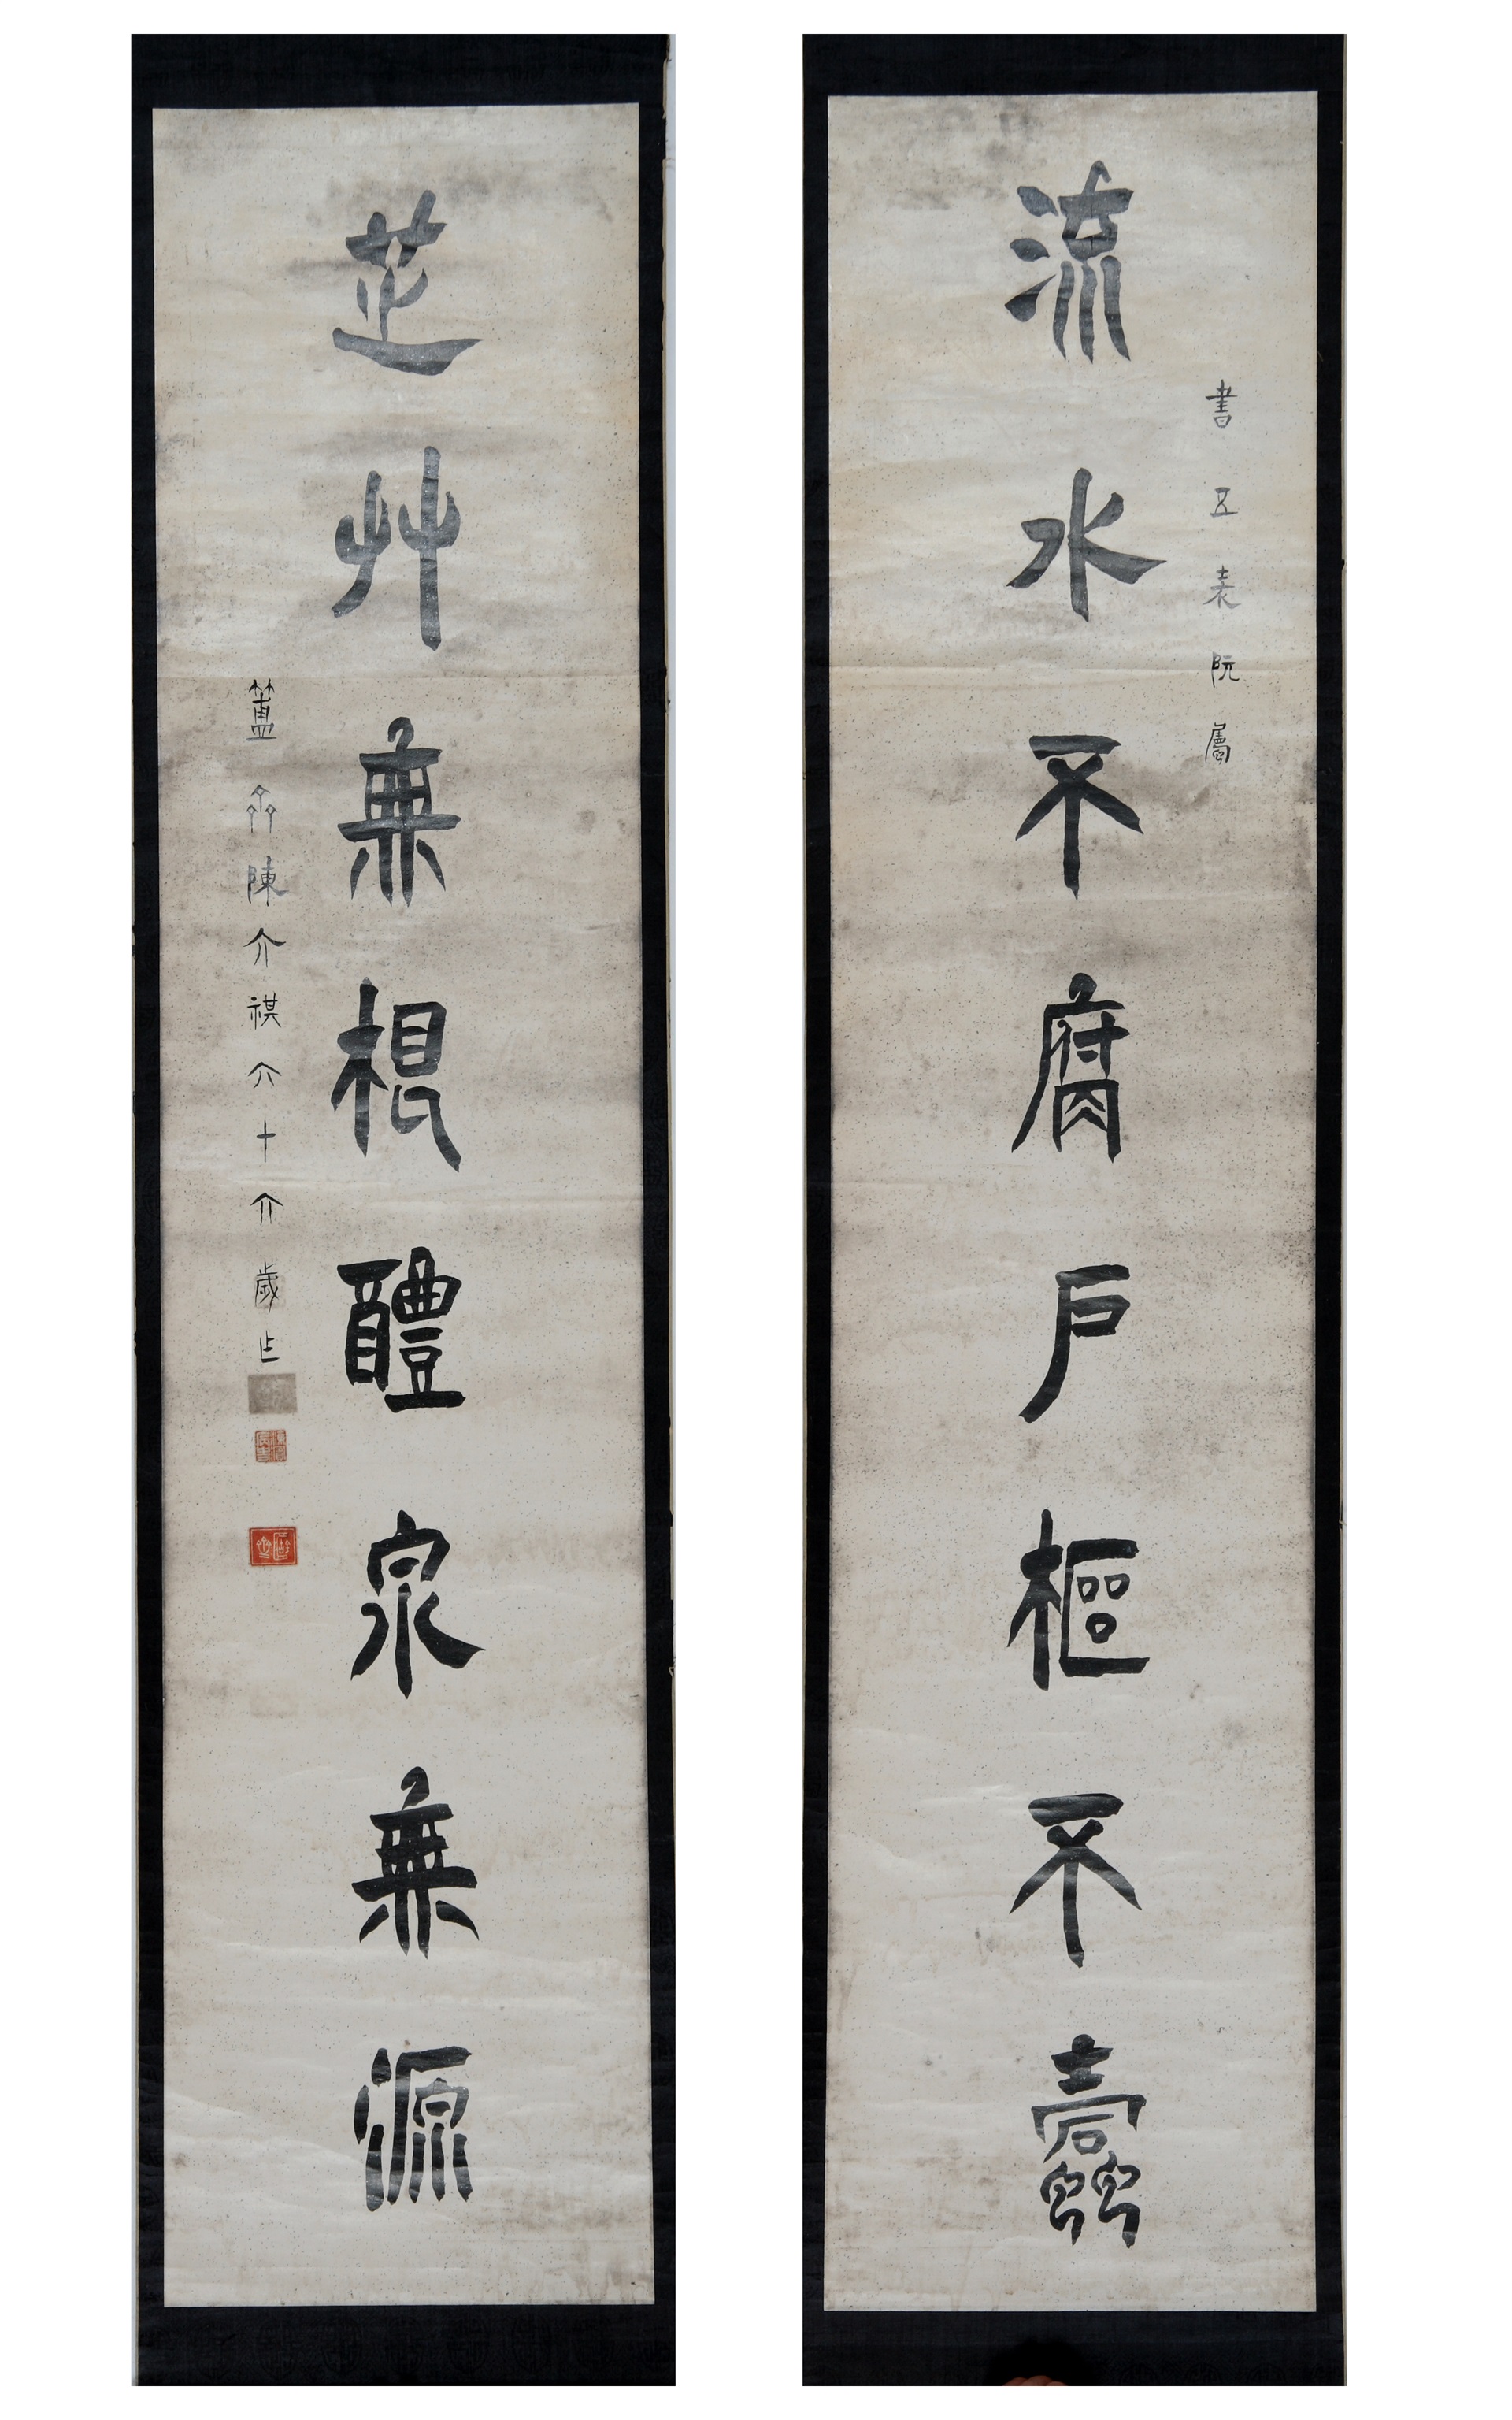 流水不腐戶樞不蠹
書五表阮屬
芝艸無根醴泉無源
簠齋陳介祺六十六歲作